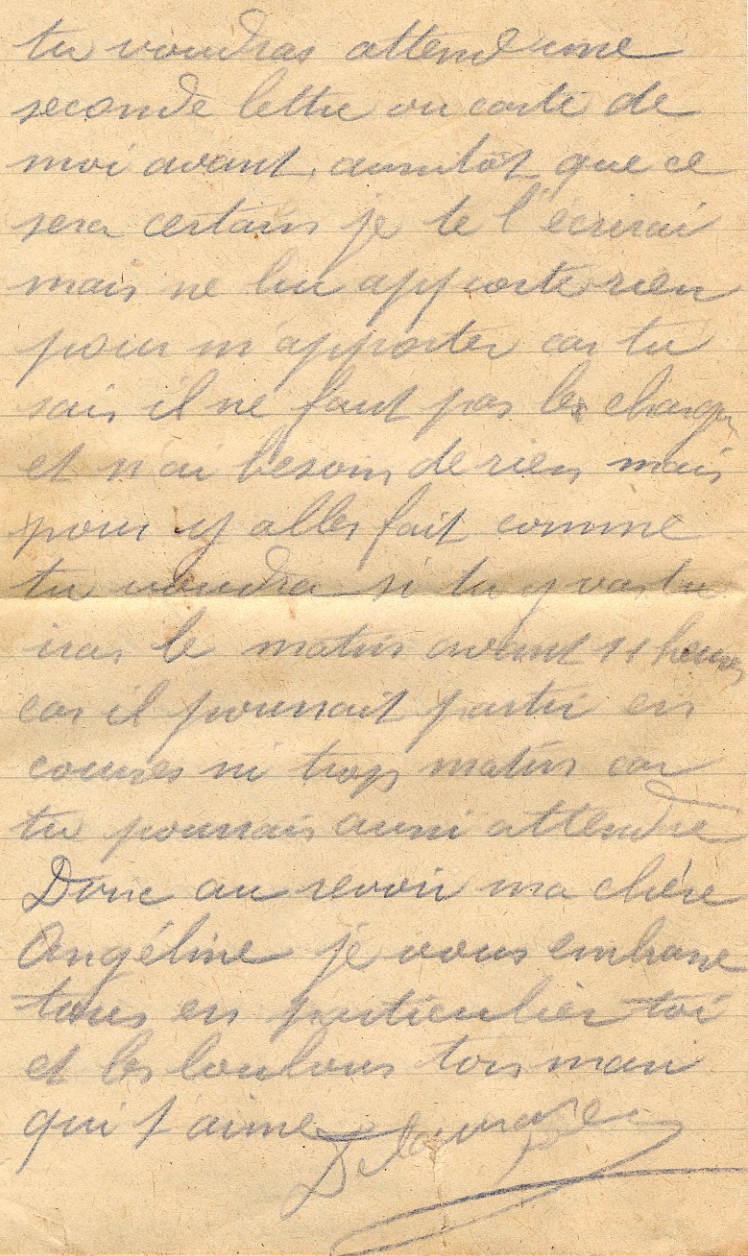 tu voudras attend une
seconde lettre ou carte de
moi avant, aussitôt que ce
sera certain je te l'écrirai
mais ne lui apporte rien
pour m'apporter car tu
sais il ne faut pas les charger
et n'ai besoin de rien mais
pour y aller fait comme
tu voudra si tu y vas tu
iras le matin avant 11 heures
car il pourrait partir en
courses ni trop matin car
tu pourrais aussi attendre
Donc au revoir ma chère
Angéline je vous embrasse
tous en particulier toi
et les loulous ton mari
qui t'aime